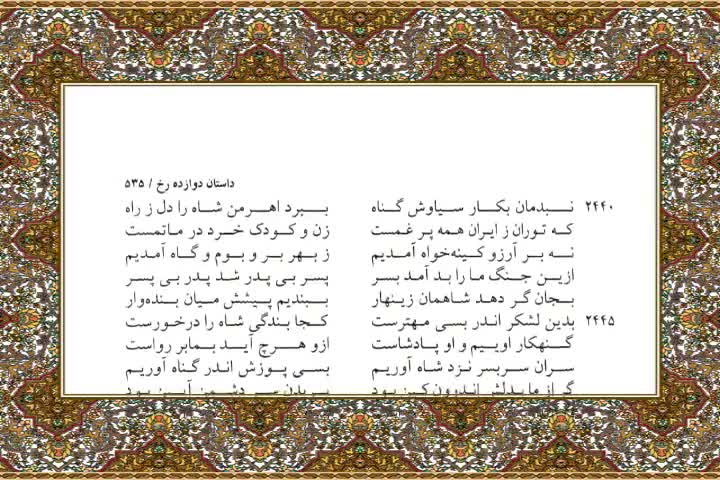 داستان دوازده رخ / ۵۳۵
۲۴۴۰ نبدمان بکار سیاوش گناه ببرد اهرمن شاه را دل ز راه
که توران ز ایران همه پر غمست زن و کودک خرد در ماتمست
نه بر آرزو کینه‌خواه آمدیم ز بهر بر و بوم و گاه آمدیم
ازین جنگ ما را بد آمد بسر پسر بی پدر شد پدر بی پسر
بجان گر دهد شاهمان زینهار ببندیم پیشش میان بنده‌وار
۲۴۴۵ بدین لشکر اندر بسی مهترست کجا بندگی شاه را درخورست
گنهکار اوییم و او پادشاست ازو هرچ آید بمابر رواست
سران سربسر نزد شاه آوریم بسی پوزش اندر گناه آوریم
گر از ما بدلش اندرون کین بود بریدن سر دشمن آیین بود